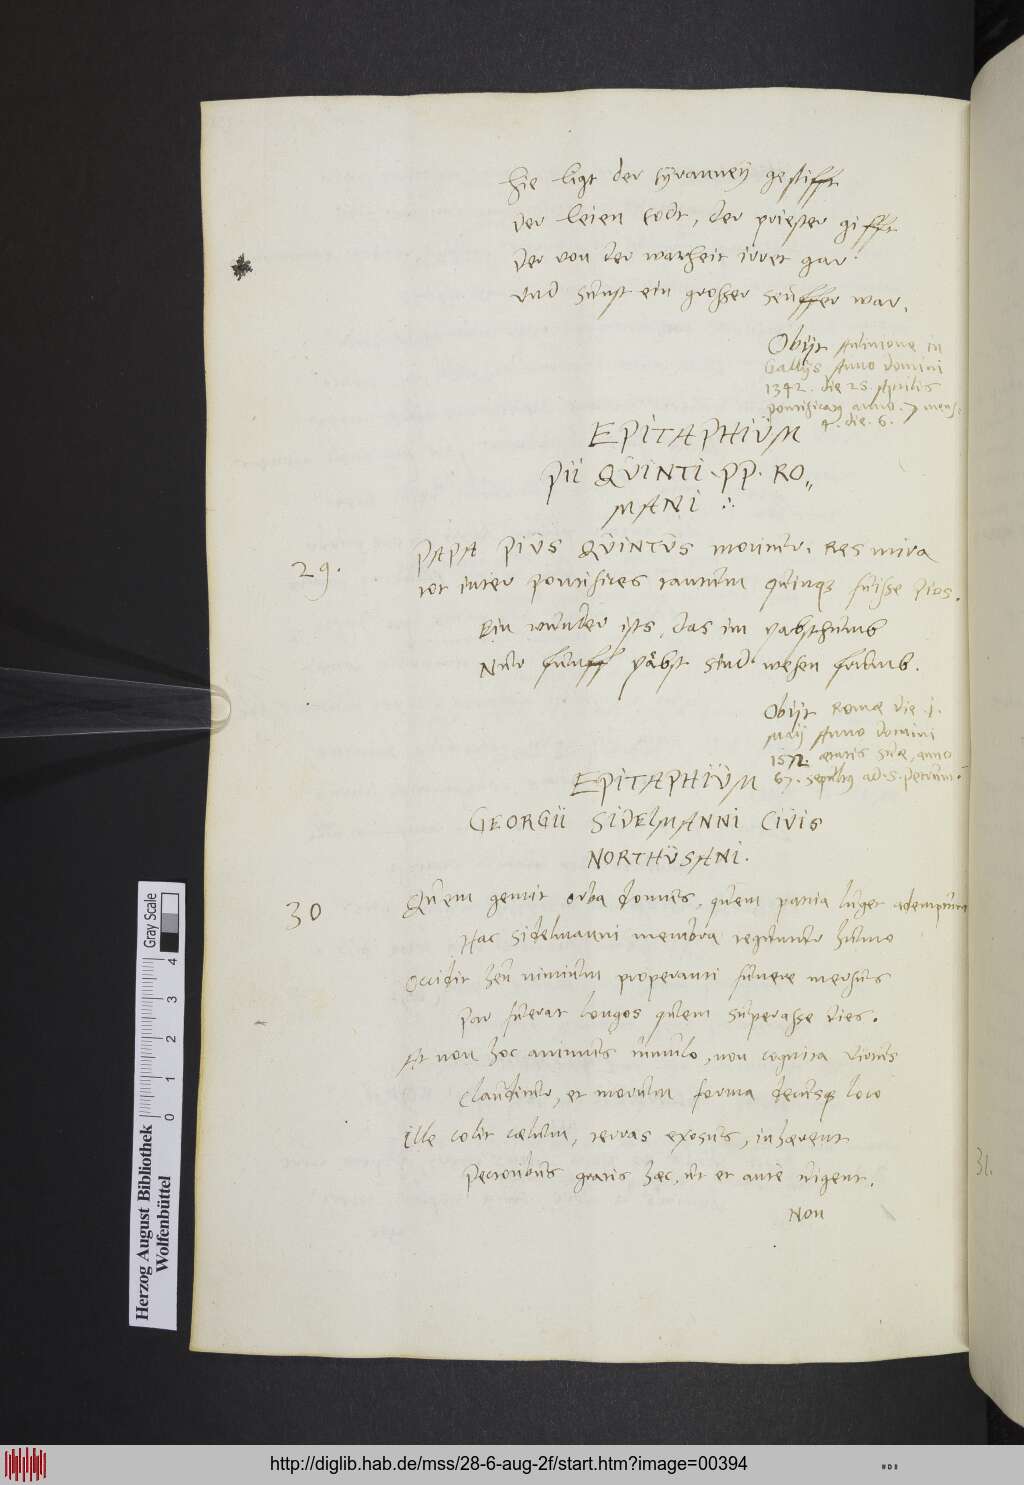 hie ligt der tÿranneÿ gestifft
der leien todt, der priester gifft
der von der warheit irret gar
und sunst ein grosser seuffer war.
Obijt Auinione in
Gallijs Anno domini
1342. die 25. Aprilis
pontificatus anno. 7 mens.
4. die. 6.
EPITAPHIŨM
PII QŨINTI PP. RO„
MANI
29.
PAPA PIŨS QŨINTŨS moritur. Res mira
tot inter pontifices tantum quinq3 fuisse pios.
Ein wunder ists, das im pabsthumb
Nur funff päbst sind wesen frumb.
Obijt Romæ die .1.
Maij Anno domini
1572. ætatis suæ, anno
67. sepultus ad. S. petrum.
EPITAPHIŨM
GEORGII SIDELMANNI CIVIS
NORTHŨSANI.
30
Quem gemit orba domus, quem patria luget ademptum
Hac Sidelmanni membra teguntur humo
Occidit heu nimium properanti funere mersus
Par fuerat longos quem superasse dies.
At non hoc animus tumulo, non cognita virtus
Clauditur, et morum forma decusq3 loco
Ille colit cœlum, terras exosus, inhærent
Pectoribus gratis hæc, ut et ante vigent.
Non
31.
Herzog August Bibliothek
Wolfenbüttel
Gray Scale
0 1 2 3 4
http://diglib.hab.de/mss/28-6-aug-2f/start.htm?image=00394